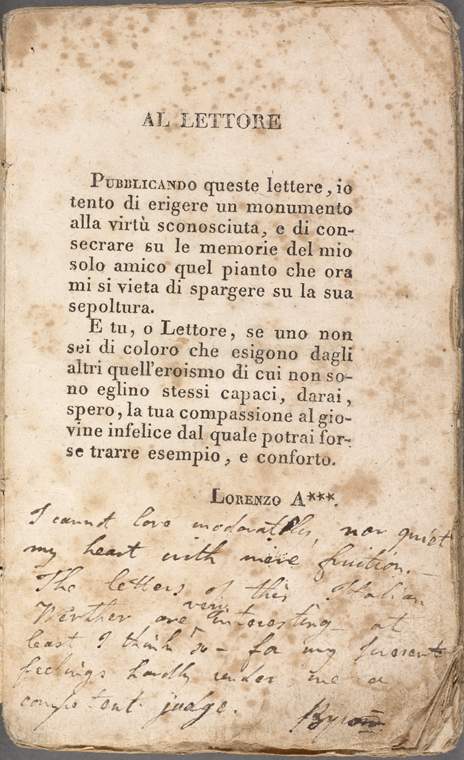 AL LETTORE
PUBBLICANDO queste lettere, io
tento di erigere un monumento
alla virtù sconosciuta, e di con-
secrare su le memorie del mio
solo amico quel pianto che ora
mi si vieta di spargere su la sua
sepoltura.
E tu, o Lettore, se uno non
sei di coloro che esigono dagli
altri quell'eroismo di cui non so-
no eglino stessi capaci, darai,
spero, la tua compassione al gio-
vine infelice dal quale potrai for-
se trarre esempio, e conforto.
LORENZO A***.
I cannot love moderately, nor quiet
my heart with mere fruition. —
The letters of this Italian
Werther are very interesting at
least I think so — for my present
feelings hardly render me a
competent judge.
Byron